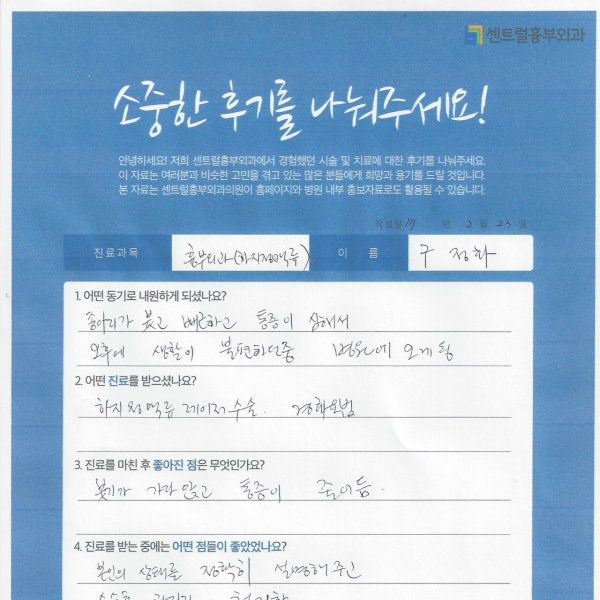 센트럴흉부외과
소중한 후기를 나눠주세요!
안녕하세요! 저희 센트럴흉부외과에서 경험했던 시술 및 치료에 대한 후기를 나눠주세요.
이 자료는 여러분과 비슷한 고민을 겪고 있는 많은 분들에게 희망과 용기를 드릴 것입니다.
본 자료는 센트럴흉부외과의원이 홈페이지와 병원 내부 홍보자료로도 활용될 수 있습니다.
작성일 17 년 2 월 23 일
진료과목 흉부외과(하지정맥류) 이 름 구정화
1. 어떤 동기로 내원하게 되셨나요?
종아리가 붓고 뻐근하고 통증이 심해서
오후에 생활이 불편하던중 병원에 오게됨
2. 어떤 진료를 받으셨나요?
하지정맥류 레이저수술. 경화요법
3. 진료를 마친 후 좋아진 점은 무엇인가요?
붓기가 가라앉고 통증이 줄어듬.
4. 진료를 받는 중에는 어떤 점들이 좋았었나요?
본인의 상태를 정확히 설명해주고